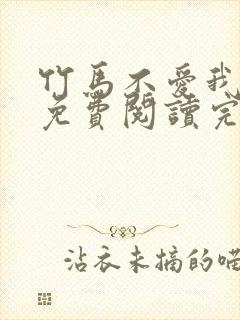 竹馬不愛我
免費閱讀完
沾衣未摘的喵